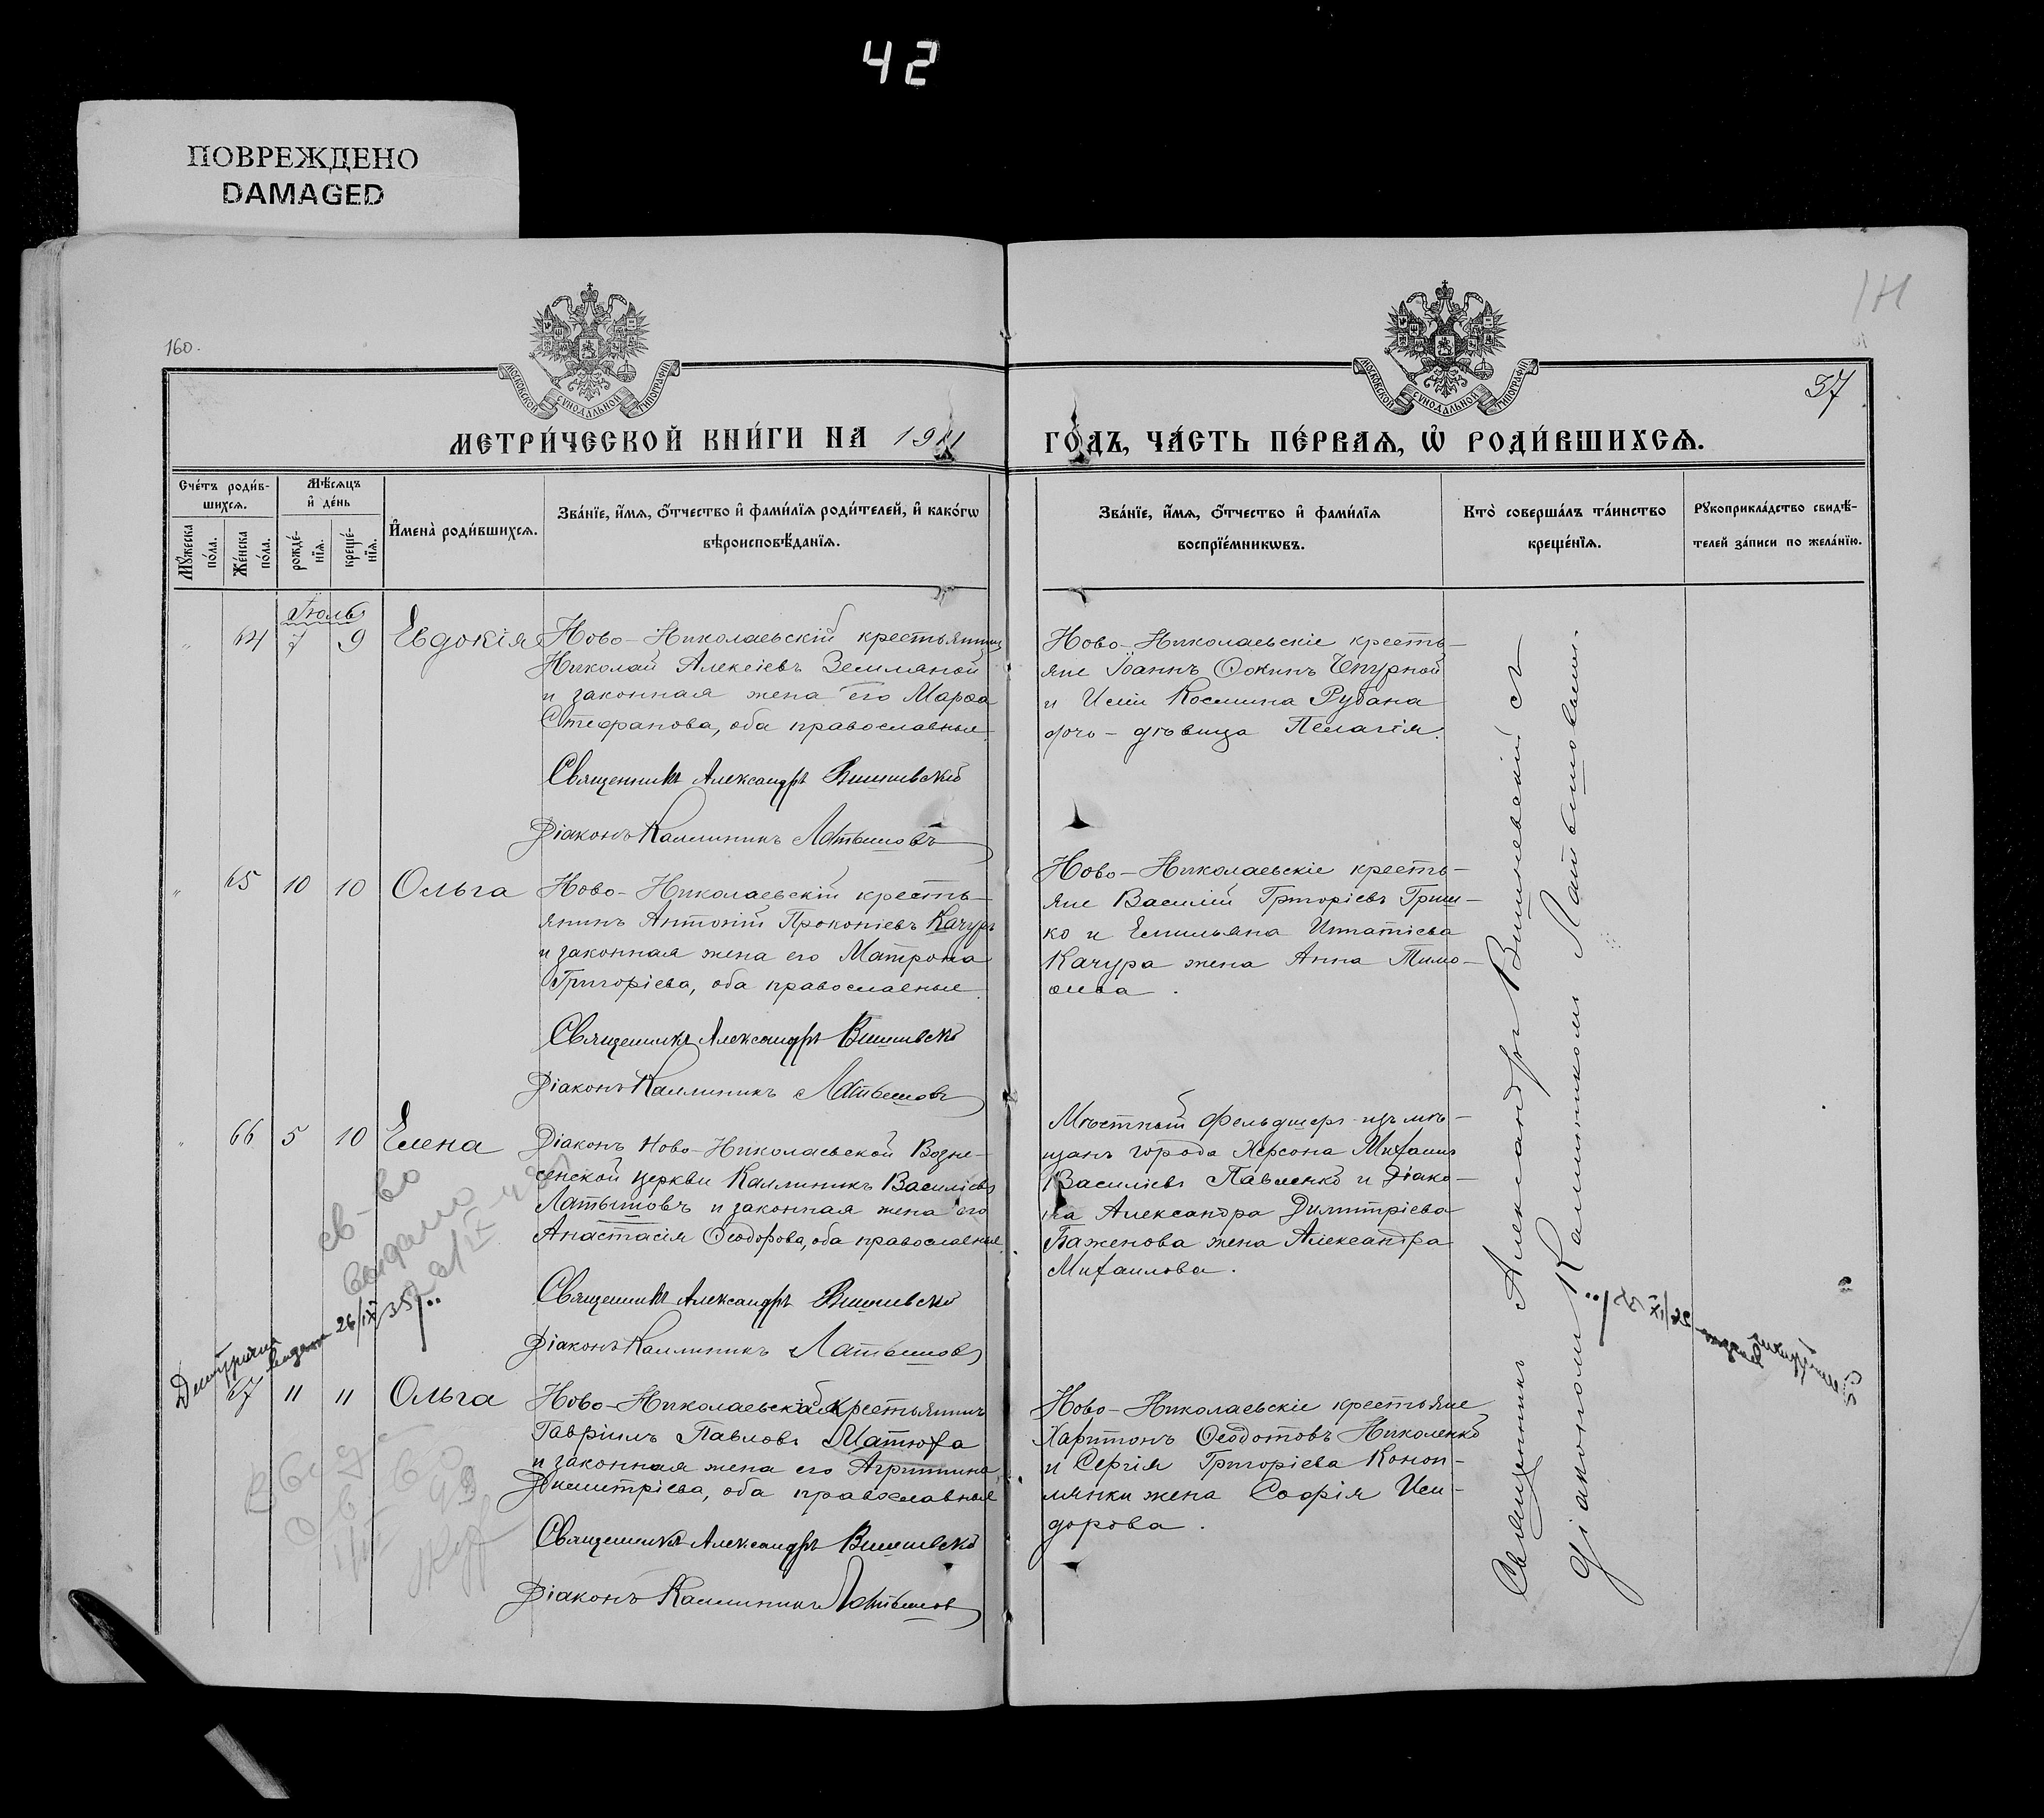 42
ПОВРЕЖДЕНО
DAMAGED
160.
37
МОСКОВСКОЙ СѴНОДАЛЬНОЙ ТИПОГРАФІИ
МОСКОВСКОЙ СѴНОДАЛЬНОЙ ТИПОГРАФІИ
МЕТРИ́ЧЕСКОЙ КНИ́ГИ НА 1911
ГО́ДЪ, ЧА́СТЬ ПЕ́РВАѦ, Ѡ҆ РОДИ́ВШИХСѦ.
Сче́тъ роди́в-
шихсѧ.
Мѣ́сѧцъ
и҆ де́нь
Мꙋ́жеска
по́ла.
Же́нска
по́ла.
рожде́-
нїѧ.
креще́-
нїѧ.
И҆мена̀ роди́вшихсѧ.
Зва́нїе, и҆́мѧ, ѻ҆́тчество и҆ фами́лїѧ роди́телей, и҆ како́гѡ
вѣроисповѣ́данїѧ.
Зва́нїе, и҆́мѧ, ѻ҆́тчество и҆ фами́лїѧ
воспрїе́мникѡвъ.
Кто̀ соверша́лъ та́инство
креще́нїѧ.
Рꙋкоприкла́дство свидѣ́-
телей за́писи по жела́нїю.
Іюль
" 64 7 9 Евдокія
Ново-Николаевскій крестьянинъ
Николай Алексіевъ Земляной
и законная жена его Марѳа
Стефанова, оба православные.
Священникъ Александръ Вишневскій
Діаконъ Каллиникъ Латышовъ
Ново-Николаевскіе кресть-
яне Іоаннъ Ѳокинъ Чпурной
и Косьмина Рубана
дочь-дѣвица Пелагія.
" 65 10 10 Ольга
Ново-Николаевскій кресть-
янинъ Антоній Прокопіевъ Качуръ
и законная жена его Матрона
Григоріева, оба православные.
Священникъ Александръ Вишневскій
Діаконъ Каллиникъ Латышовъ
Ново-Николаевскіе кресть-
яне Василій Григоріевъ Гриш-
ко и Емильяна Игнатіева
Качура жена Анна Тимо-
ѳеева.
" 66 5 10 Елена
Діаконъ Ново-Николаевской Возне-
сенской церкви Каллиникъ Василіевъ
Латышовъ и законная жена его
Анастасія Ѳеодорова, оба православные.
Священникъ Александръ Вишневскій
Діаконъ Каллиникъ Латышовъ
Мѣстный фельдшеръ изъ мѣ-
щанъ города Херсона Михаилъ
Василіевъ Павленко и діако-
на Александра Димитріева
Баженова жена Александра
Михаилова.
св-во
выдано
26/IX 35
67 11 11 Ольга
Ново-Николаевскій крестьянинъ
Гавріилъ Павловъ Матюха
и законная жена его Агриппина
Димитріева, оба православные
Священникъ Александръ Вишневскій
Діаконъ Каллиникъ Латышовъ
Ново-Николаевскіе крестьяне
Харитонъ Ѳеодотовъ Николенко
и Сергія Григоріева Коноп-
лянки жена Софія Иси-
дорова.
Священникъ Александръ Вишневскій съ
діакономъ Каллиникомъ Латышовымъ.